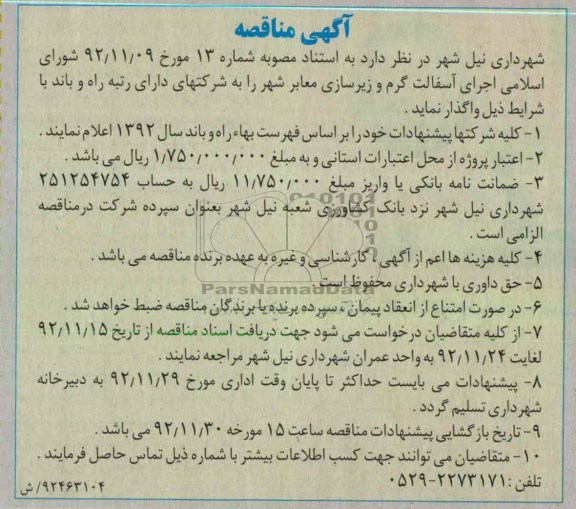 آگهی مناقصه
شهرداری نیل شهر در نظر دارد به استناد مصوبه شماره ۱۳ مورخ ۹۲٫۱۱٫۰۹ شورای
اسلامی اجرای آسفالت گرم و زیرسازی معابر شهر را به شرکتهای دارای رتبه راه و باند با
شرایط ذیل واگذار نماید .
۱- کلیه شرکتها پیشنهادات خود را بر اساس فهرست بهاء راه و باند سال ۱۳۹۲ اعلام نمایند .
۲- اعتبار پروژه از محل اعتبارات استانی و به مبلغ ۱٫۷۵۰٫۰۰۰٫۰۰۰ ریال می باشد .
۳- ضمانت نامه بانکی یا واریز مبلغ ۱۱٫۷۵۰٫۰۰۰ ریال به حساب ۲۵۱۲۵۴۷۵۴
شهرداری نیل شهر نزد بانک کشاورزی شعبه نیل شهر بعنوان سپرده شرکت در مناقصه
الزامی است .
۴- کلیه هزینه ها اعم از آگهی ، کارشناسی و غیره به عهده برنده مناقصه می باشد .
۵- حق داوری با شهرداری محفوظ است
ParsNamadData
۶- در صورت امتناع از انعقاد پیمان ، سپرده برنده یا برندگان مناقصه ضبط خواهد شد .
۷- از کلیه متقاضیان درخواست می شود جهت دریافت اسناد مناقصه از تاریخ ۹۲٫۱۱٫۱۵
لغایت ۹۲٫۱۱٫۲۴ به واحد عمران شهرداری نیل شهر مراجعه نمایند .
۸- پیشنهادات می بایست حداکثر تا پایان وقت اداری مورخ ۹۲٫۱۱٫۲۹ به دبیرخانه
شهرداری تسلیم گردد .
۹- تاریخ بازگشایی پیشنهادات مناقصه ساعت ۱۵ مورخه ۹۲٫۱۱٫۳۰ می باشد .
۱۰- متقاضیان می توانند جهت کسب اطلاعات بیشتر با شماره ذیل تماس حاصل فرمایند .
تلفن : ۲۲۷۳۱۷۱-۰۵۲۹
۹۲۴۶۳۱۰۴/ ش